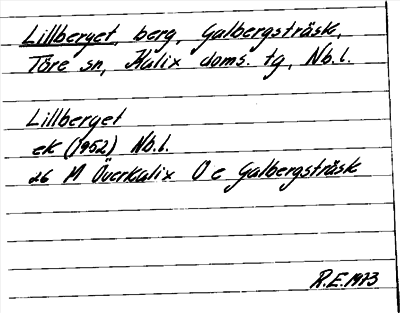 Lillberget, berg, Galbergsträsk,
Töre sn, Kalix doms. tg, Nb.l.
Lillberget
ek (1952) Nb.l.
26 M Överkalix O e Galbergsträsk
R.E. 1973